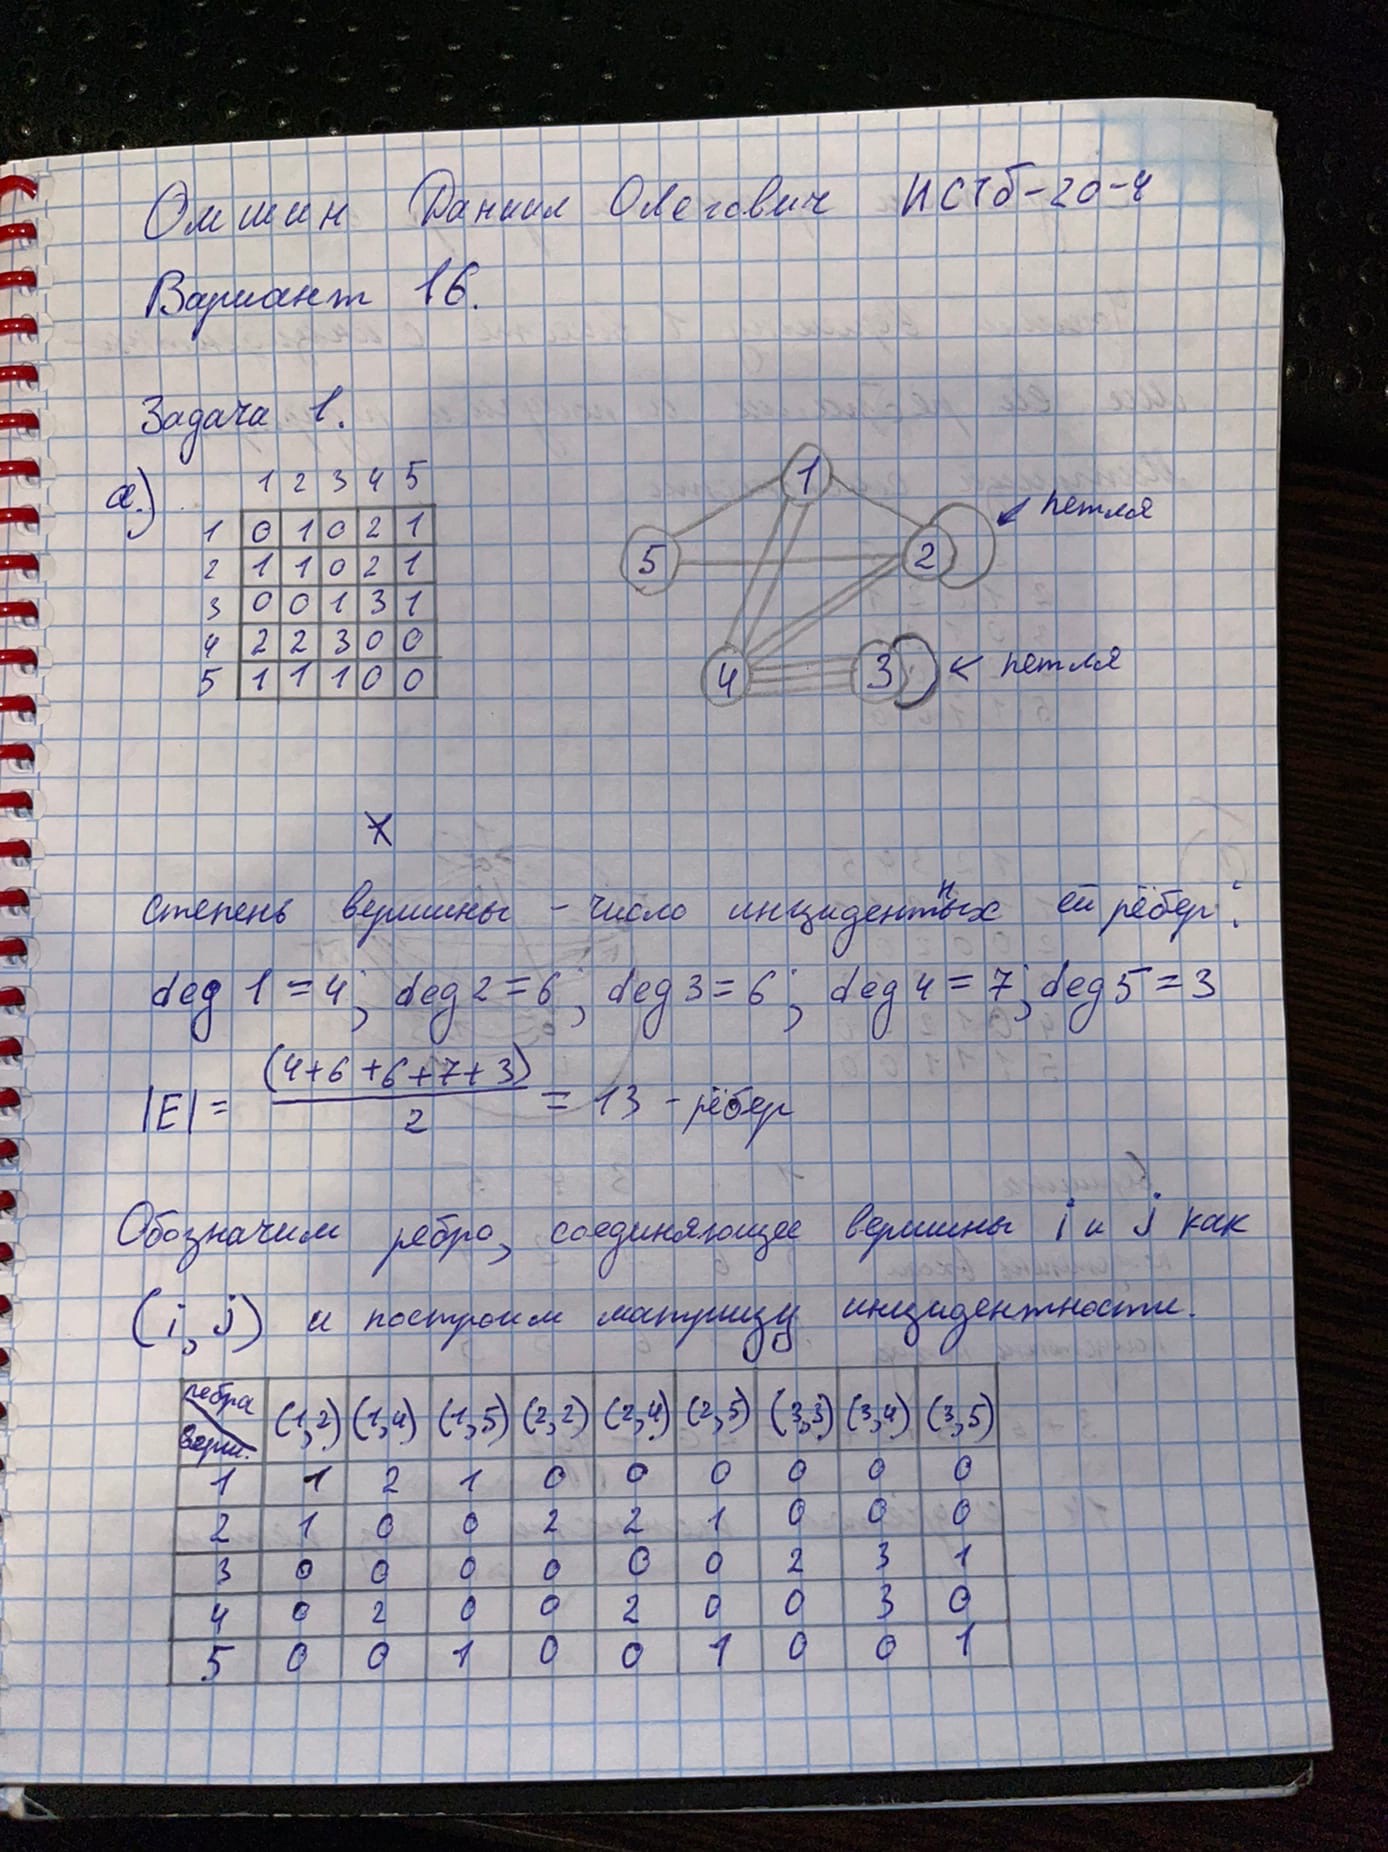 Омшин Даниил Олегович ИСТб-20-4
Вариант 16.
Задача 1.
а.)
1 2 3 4 5
1 0 1 0 2 1
2 1 1 0 2 1
3 0 0 1 3 1
4 2 2 3 0 0
5 1 1 1 0 0
1
5 2 петля
4 3 петля
степень вершины - число инцидентных ей рёбер:
deg 1 = 4; deg 2 = 6; deg 3 = 6; deg 4 = 7; deg 5 = 3
|E| = (4+6+6+7+3) / 2 = 13 - рёбер
Обозначим ребро, соединяющее вершины i и j как
(i, j) и построим матрицу инцидентности.
ребра верш. (1,2) (1,4) (1,5) (2,2) (2,4) (2,5) (3,3) (3,4) (3,5)
1 1 2 1 0 0 0 0 0 0
2 1 0 0 2 2 1 0 0 0
3 0 0 0 0 0 0 2 3 1
4 0 2 0 0 2 0 0 3 0
5 0 0 1 0 0 1 0 0 1